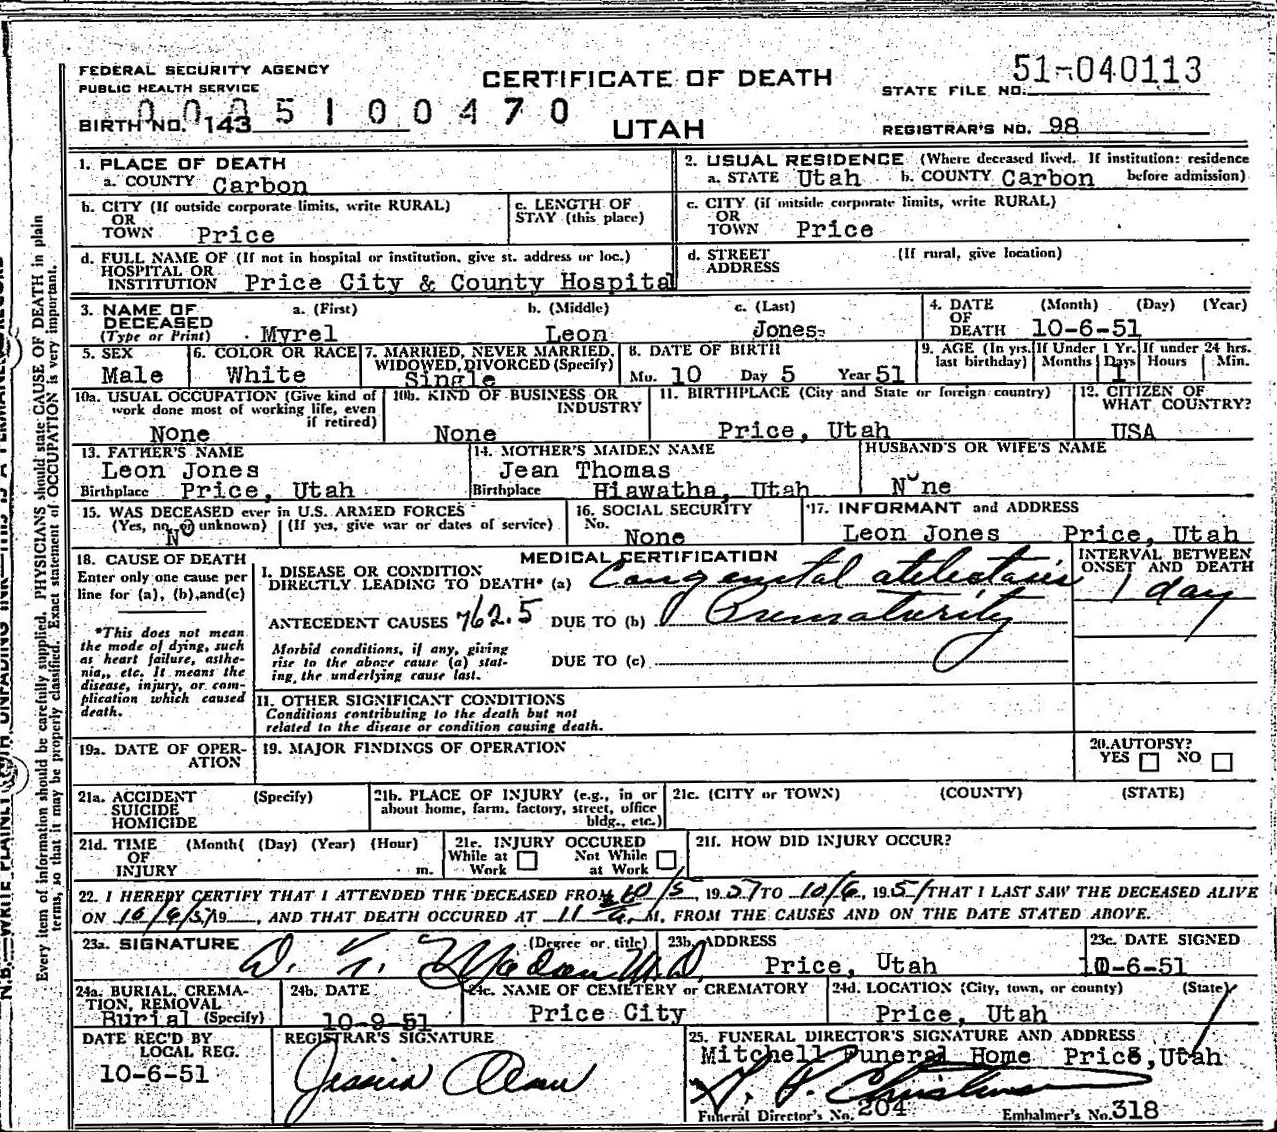 FEDERAL SECURITY AGENCY
PUBLIC HEALTH SERVICE
CERTIFICATE OF DEATH
STATE FILE NO. 51-040113
BIRTH NO. 143 5100470
UTAH
REGISTRAR'S NO. 98
1. PLACE OF DEATH
a. COUNTY Carbon
2. USUAL RESIDENCE (Where deceased lived. If institution: residence before admission)
a. STATE Utah b. COUNTY Carbon
b. CITY (If outside corporate limits, write RURAL) OR TOWN Price
c. LENGTH OF STAY (this place)
c. CITY (if outside corporate limits, write RURAL) OR TOWN Price
d. FULL NAME OF (If not in hospital or institution, give st. address or loc.) HOSPITAL OR INSTITUTION Price City & County Hospital
d. STREET ADDRESS (If rural, give location)
3. NAME OF DECEASED (Type or Print)
a. (First) Myrel
b. (Middle) Leon
c. (Last) Jones
4. DATE OF DEATH (Month) (Day) (Year) 10-6-51
5. SEX Male
6. COLOR OR RACE White
7. MARRIED, NEVER MARRIED, WIDOWED, DIVORCED (Specify) Single
8. DATE OF BIRTH Mo. 10 Day 5 Year 51
9. AGE (In yrs. last birthday)
If Under 1 Yr. Months Days 1
If under 24 hrs. Hours Min.
10a. USUAL OCCUPATION (Give kind of work done most of working life, even if retired) None
10b. KIND OF BUSINESS OR INDUSTRY None
11. BIRTHPLACE (City and State or foreign country) Price, Utah
12. CITIZEN OF WHAT COUNTRY? USA
13. FATHER'S NAME Leon Jones
Birthplace Price, Utah
14. MOTHER'S MAIDEN NAME Jean Thomas
Birthplace Hiawatha, Utah
HUSBAND'S OR WIFE'S NAME None
15. WAS DECEASED ever in U.S. ARMED FORCES
(Yes, no, or unknown) No (If yes, give war or dates of service)
16. SOCIAL SECURITY No. None
17. INFORMANT and ADDRESS Leon Jones Price, Utah
18. CAUSE OF DEATH
Enter only one cause per line for (a), (b), and (c)
*This does not mean the mode of dying, such as heart failure, asthenia, etc. It means the disease, injury, or complication which caused death.
MEDICAL CERTIFICATION
I. DISEASE OR CONDITION DIRECTLY LEADING TO DEATH* (a) Congenital atelectasis
ANTECEDENT CAUSES 762.5 DUE TO (b) Prematurity
Morbid conditions, if any, giving rise to the above cause (a) stating, the underlying cause last.
DUE TO (c)
INTERVAL BETWEEN ONSET AND DEATH
1 day
11. OTHER SIGNIFICANT CONDITIONS
Conditions contributing to the death but not related to the disease or condition causing death.
19a. DATE OF OPERATION
19. MAJOR FINDINGS OF OPERATION
20. AUTOPSY? YES NO
21a. ACCIDENT SUICIDE HOMICIDE (Specify)
21b. PLACE OF INJURY (e.g., in or about home, farm, factory, street, office bldg., etc.)
21c. (CITY or TOWN) (COUNTY) (STATE)
21d. TIME OF INJURY (Month( (Day) (Year) (Hour) m.
21e. INJURY OCCURED While at Work Not While at Work
21f. HOW DID INJURY OCCUR?
22. I HEREBY CERTIFY THAT I ATTENDED THE DECEASED FROM 10/5, 1951 TO 10/6, 1951 THAT I LAST SAW THE DECEASED ALIVE
ON 10/6/51 19__, AND THAT DEATH OCCURED AT 11 a. M, FROM THE CAUSES AND ON THE DATE STATED ABOVE.
23a. SIGNATURE (Degree or title) M.D.
23b. ADDRESS Price, Utah
23c. DATE SIGNED 10-6-51
24a. BURIAL, CREMATION, REMOVAL (Specify) Burial
24b. DATE 10-9-51
24c. NAME OF CEMETERY or CREMATORY Price City
24d. LOCATION (City, town, or county) (State) Price, Utah
DATE REC'D BY LOCAL REG. 10-6-51
REGISTRAR'S SIGNATURE Jessica Olson
25. FUNERAL DIRECTOR'S SIGNATURE AND ADDRESS
Mitchell Funeral Home Price, Utah
Funeral Director's No. 204 Embalmer's No. 318
Every item of information should be carefully supplied. PHYSICIANS should state CAUSE OF DEATH in plain
terms, so that it may be properly classified. Exact statement of OCCUPATION is very important.